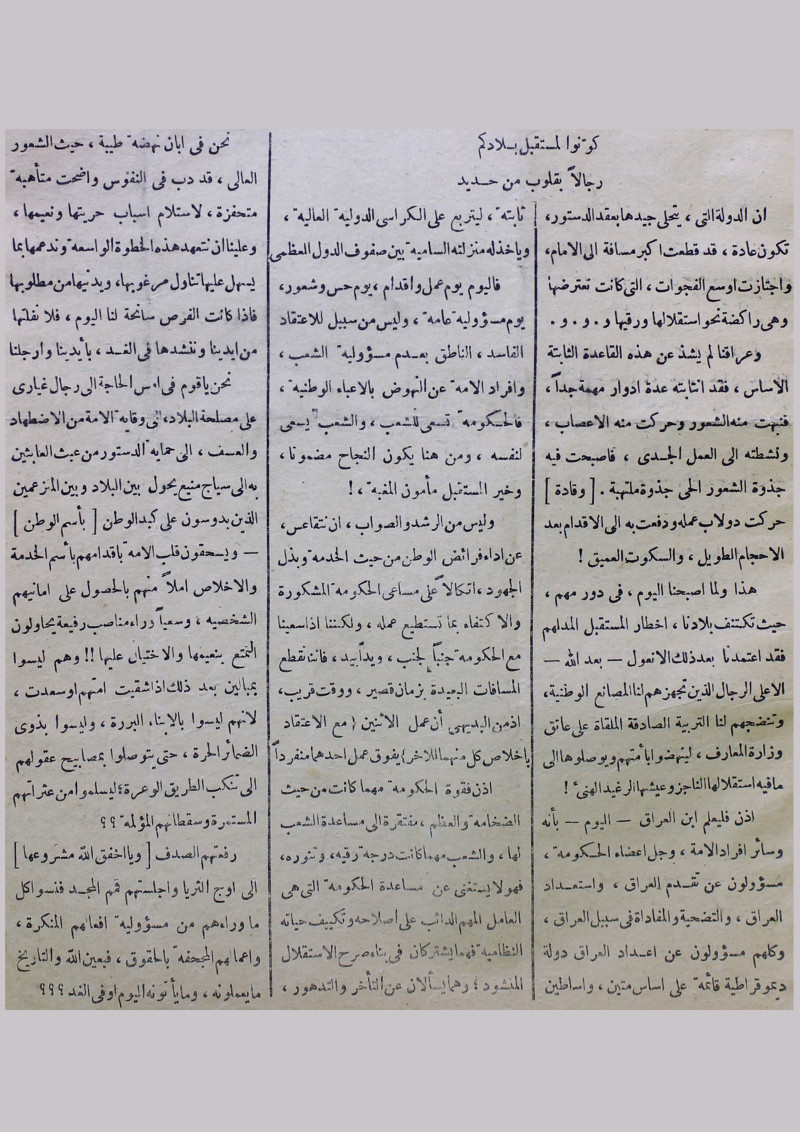 كوّنوا لمستقبل بلادكم
رجالاً بقلوب من حديد
ان الدولة التى ، يتحلى جيدها بعقد الدستور،
تكون عادة ، قد قطعت اكبر مسافة الى الامام،
واجتازت اوسع الفجوات ، التى كانت تعترضها
وهى راكضة نحو استقلالها ورقيها و . و . و .
وعراقنا لم يشذ عن هذه القاعدة الثابتة
الأساس ، فقد انتابته عدة ادوار مهمة جداً ،
فنبهت منه الشعور وحركت منه الاعصاب ،
ونشطته الى العمل الجدى ، فاصبحت فيه
جذوة الشعور الحى جذوة ملتهبة . [ وقادة ]
حركت دولاب عمله ودفعت به الى الاقدام بعد
الاحجام الطويل ، والسكوت العميق !
هذا ولما اصبحنا اليوم ، فى دور مهم ،
حيث تكتنف بلادنا ، اخطار المستقبل المدلهم
فقد اعتمدنا بعد ذلك الا نعول — بعد الله —
الا على الرجال الذين تجهزهم لنا المصانع الوطنية،
وتنضجهم لنا التربية الصادقة الملقاة على عاتق
وزارة المعارف ، لينهضوا بأمتهم ويوصلوها الى
مافيه استقلالها الناجز وعيشها الرغيد الهنئ !
اذن فليعلم ابن العراق — اليوم — بأنه
وسائر افراد الامة ، وجل اعضاء الحكومة ،
مسؤولون عن تقدم العراق ، واستعداد
العراق ، والتضحية والمفاداة فى سبيل العراق ،
وكلهم مسؤولون عن اعداد العراق دولة
ديموقراطية قائمة على اساس متين ، واساطين
ثابتة ، ليتربع على الكراسى الدولية العالية ،
وياخذله منزلته السامية بين صفوف الدول العظمى
فاليوم يوم عمل واقدام ، يوم حس وشعور،
يوم مسؤولية عامة ، وليس من سبيل للاعتقاد
الفاسد ، الناطق بعدم مسؤولية الشعب ،
وافراد الامة عن النهوض بالاعباء الوطنية ،
فالحكومة تسعى للشعب ، والشعب يسعى
لنفسه ، ومن هنا يكون النجاح مضمونا ،
وخير المستقبل مأمون المغبة ، !
وليس من الرشد والصواب ، ان نتقاعس،
عن اداء فرائض الوطن من حيث الخدمة وبذل
الجهود ، اتكالاً على مساعى الحكومة المشكورة
والاكتفاء بما تستطيع عمله ، ولكننا اذا سعينا
مع الحكومة جنباً لجنب ، ويداً بيد ، فاننا نقطع
المسافات البعيدة بزمان قصير ، ووقت قريب،
اذ من البديهى أن عمل الاثنين ( مع الاعتقاد
باخلاص كل منهما للاخر ) يفوق عمل احدهما منفرداً
اذن فقوة الحكومة مهما كانت من حيث
الضخامة والعظم ، مفتقرة الى مساعدة الشعب
لها ، والشعب مهما كانت درجة رقيه ، وتنوره ،
فهو لا يستغنى عن مساعدة الحكومة التى هى
العامل المهم الدائب على أصلاحه وتكييف حياته
النظامية فهما يشتركان فى بناء صرح الاستقلال
المنشود ؛ وهما يسألان عن التأخر والتدهور ،
نحن فى ابان نهضة طيبة ، حيث الشعور
العالى ، قد دب فى النفوس واضحت متأهبة
متحفزة ، لاستلام اسباب حريتها ونعيمها ،
وعلينا ان نتعهد هذه الخطوة الواسعة وندعمها بما
يسهل عليها تناول مرغوبها، ويدنيها من مطلوبها
فاذا كانت الفرص سانحة لنا اليوم ، فلا نفلتها
من ايدينا وننشدها فى الغد ، بأيدينا وارجلنا
نحن ياقوم فى امس الحاجة الى رجال غيارى
على مصلحة البلاد، الى وقاية الامة من الاضطهاد
والعسف ، الى حماية الدستور من عبث العابثين
به الى سياج منيع يحول بين البلاد وبين المزعمين
الذين يدوسون على كبد الوطن [ بأسم الوطن ]
— ويسحقون قلب الامة باقدامهم بأسم الخدمة
والاخلاص املاً منهم بالحصول على امانيهم
الشخصية ، وسعياً وراء مناصب رفيعة يحاولون
التمتع بنعيمها والاختيال عليها !! وهم ليسوا
يمبالين بعد ذلك اذا شقيت امتهم او سعدت ،
لانهم ليسوا بالابناء البررة ، وليسوا بذوى
الضمائر الحرة ، حتى يتوصلوا بمصابيح عقولهم
الى تنكب الطريق الوعرة ؛ ليسلموا من عثراتهم
المستمرة وسقطاتهم المؤلمة ؟؟
رفعتهم الصدف [ ويا اخفق الله مشروعها ]
الى اوج الثريا واجلستهم قمم المجد فنسوا كل
ما وراءهم من مسؤولية افعالهم المنكرة ،
واعمالهم المجحفة بالحقوق ، فبعين الله والتاريخ
ما يعملونه ، وما يأتونه اليوم اوفى الغد ؟؟؟